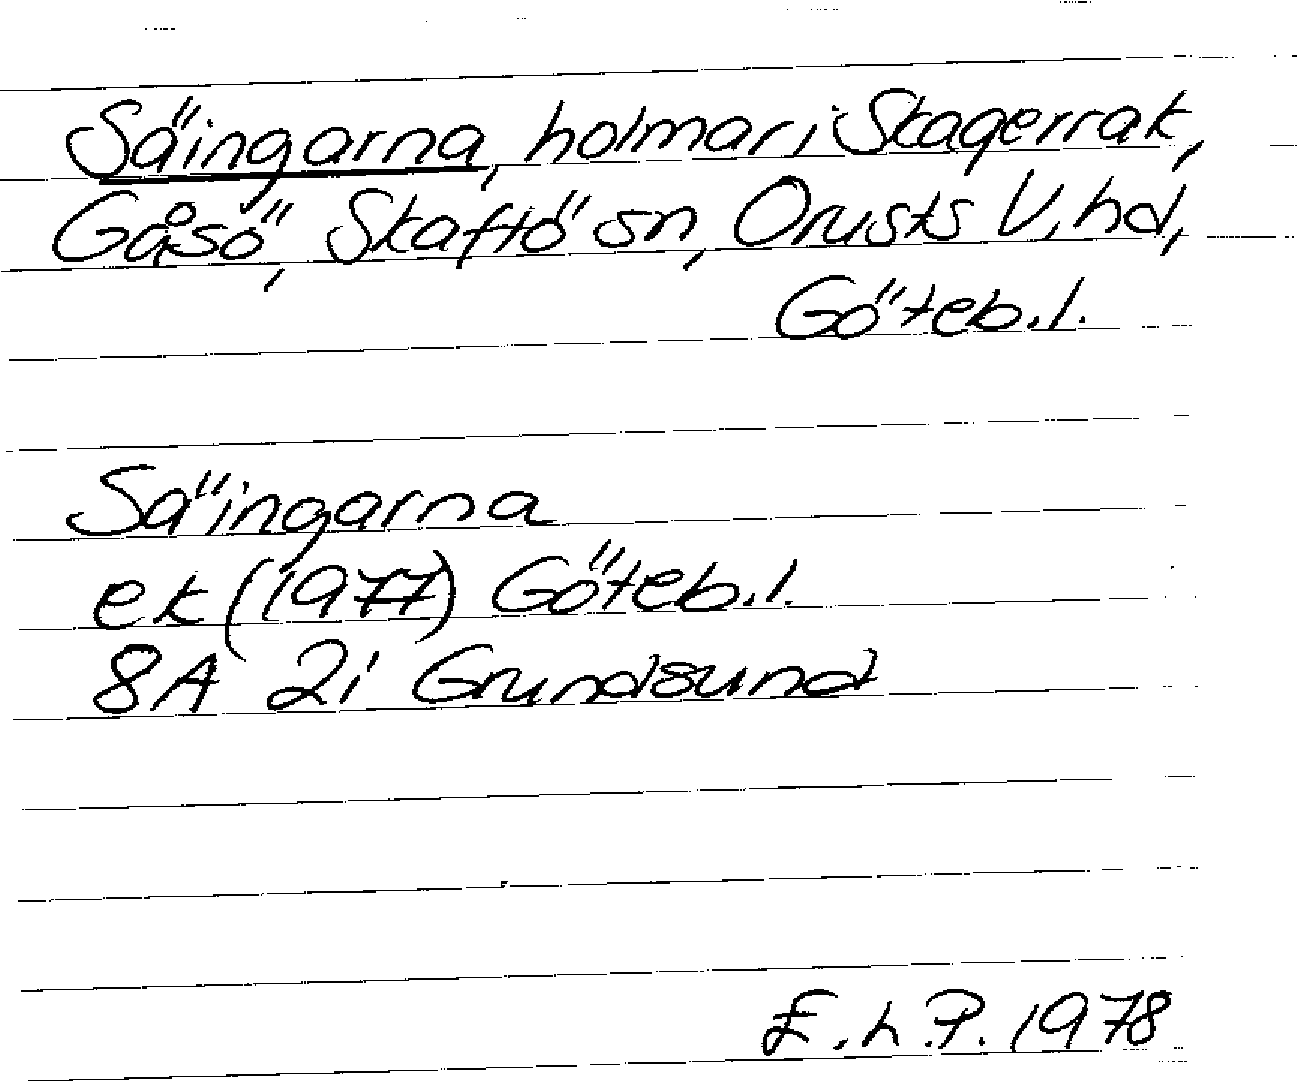 Säingarna, holmar i Skagerrak,
Gåsö, Skaftö sn, Orusts V. hd,
Göteb. l.
Säingarna
ek (1977) Göteb. l.
8A 2i Grundsund
E. h. P. 1978